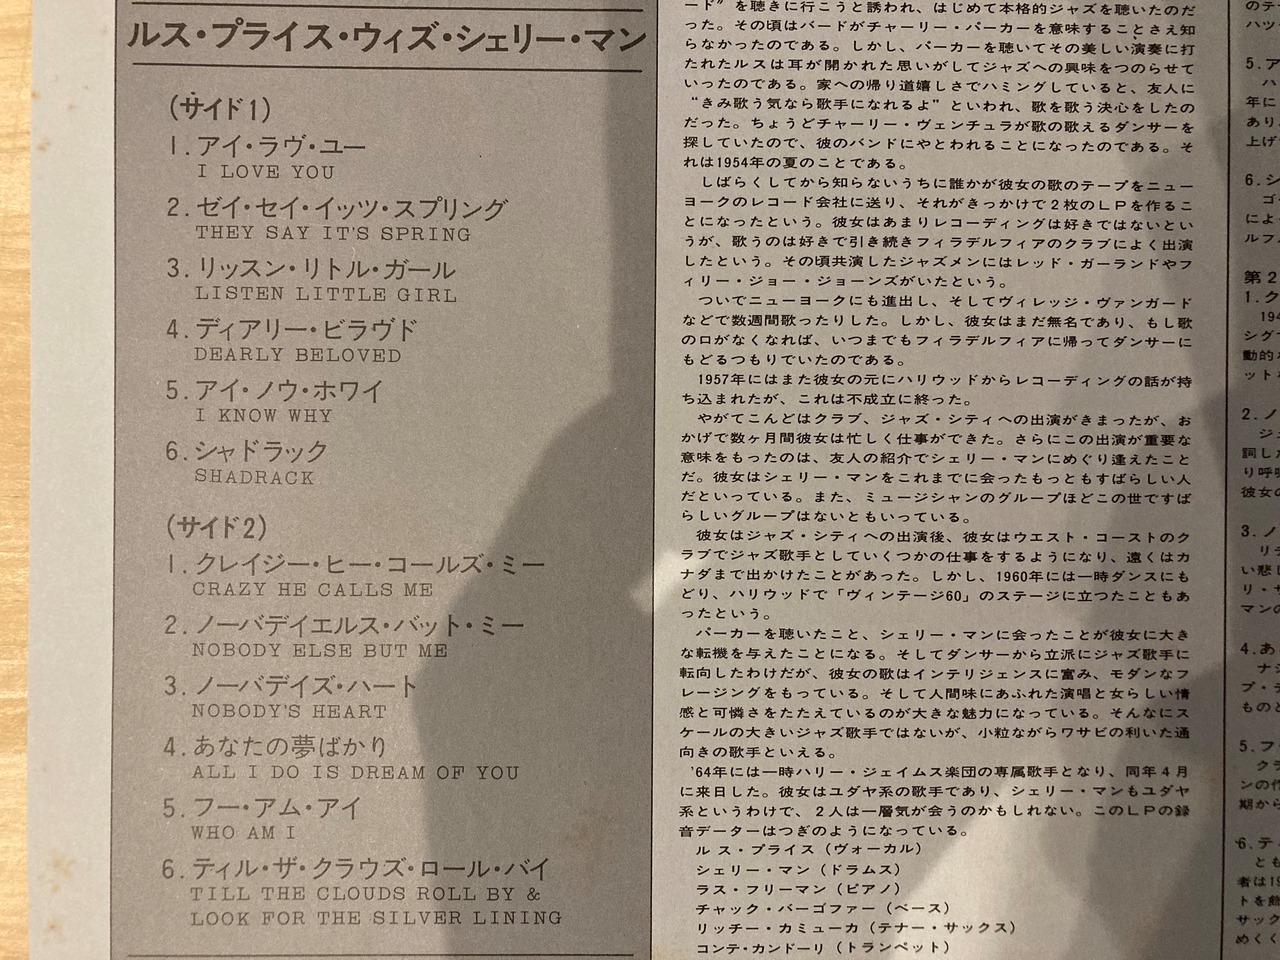 ルス・プライス・ウィズ・シェリー・マン
(サイド1)
1. アイ・ラヴ・ユー
I LOVE YOU
2. ゼイ・セイ・イッツ・スプリング
THEY SAY IT'S SPRING
3. リッスン・リトル・ガール
LISTEN LITTLE GIRL
4. ディアリー・ビラヴド
DEARLY BELOVED
5. アイ・ノウ・ホワイ
I KNOW WHY
6. シャドラック
SHADRACK
(サイド2)
1. クレイジー・ヒー・コールズ・ミー
CRAZY HE CALLS ME
2. ノーバデイエルス・バット・ミー
NOBODY ELSE BUT ME
3. ノーバデイズ・ハート
NOBODY'S HEART
4. あなたの夢ばかり
ALL I DO IS DREAM OF YOU
5. フー・アム・アイ
WHO AM I
6. ティル・ザ・クラウズ・ロール・バイ
TILL THE CLOUDS ROLL BY &
LOOK FOR THE SILVER LINING
ード”を聴きに行こうと誘われ、はじめて本格的ジャズを聴いたのだ
った。その頃はバードがチャーリー・パーカーを意味することさえ知
らなかったのである。しかし、パーカーを聴いてその美しい演奏に打
たれたルスは耳が開かれた思いがしてジャズへの興味をつのらせて
いったのである。家への帰り道嬉しさでハミングしていると、友人に
“きみ歌う気なら歌手になれるよ”といわれ、歌を歌う決心をしたの
だった。ちょうどチャーリー・ヴェンチュラが歌の歌えるダンサーを
探していたので、彼のバンドにやとわれることになったのである。そ
れは1954年の夏のことである。
しばらくしてから知らないうちに誰かが彼女の歌のテープをニュー
ヨークのレコード会社に送り、それがきっかけで2枚のLPを作るこ
とになったという。彼女はあまりレコーディングは好きではないとい
うが、歌うのは好きで引き続きフィラデルフィアのクラブによく出演
したという。その頃共演したジャズメンにはレッド・ガーランドやフ
ィリー・ジョー・ジョーンズがいたという。
ついでニューヨークにも進出し、そしてヴィレッジ・ヴァンガード
などで数週間歌ったりした。しかし、彼女はまだ無名であり、もし歌
の口がなくなれば、いつまでもフィラデルフィアに帰ってダンサーに
もどるつもりでいたのである。
1957年にはまた彼女の元にハリウッドからレコーディングの話が持
ち込まれたが、これは不成立に終った。
やがてこんどはクラブ、ジャズ・シティへの出演がきまったが、お
かげで数ヶ月間彼女は忙しく仕事ができた。さらにこの出演が重要な
意味をもったのは、友人の紹介でシェリー・マンにめぐり逢えたこと
だ。彼女はシェリー・マンをこれまでに会ったもっともすばらしい人
だといっている。また、ミュージシャンのグループほどこの世ですば
らしいグループはないともいっている。
彼女はジャズ・シティへの出演後、彼女はウエスト・コーストのク
ラブでジャズ歌手としていくつかの仕事をするようになり、遠くはカ
ナダまで出かけたことがあった。しかし、1960年には一時ダンスにも
どり、ハリウッドで「ヴィンテージ60」のステージに立つたこともあ
ったという。
パーカーを聴いたこと、シェリー・マンに会ったことが彼女に大き
な転機を与えたことになる。そしてダンサーから立派にジャズ歌手に
転向したわけだが、彼女の歌はインテリジェンスに富み、モダンなフ
レージングをもっている。そして人間味にあふれた演唱と女らしい情
感と可憐さをたたえているのが大きな魅力になっている。そんなにス
ケールの大きいジャズ歌手ではないが、小粒ながらワサビの利いた通
向きの歌手といえる。
'64年には一時ハリー・ジェイムス楽団の専属歌手となり、同年4月
に来日した。彼女はユダヤ系の歌手であり、シェリー・マンもユダヤ
系というわけで、2人は一層気が会うのかもしれない。このLPの録
音データーはつぎのようになっている。
ルス・プライス(ヴォーカル)
シェリー・マン(ドラムス)
ラス・フリーマン(ピアノ)
チャック・バーゴファー(ベース)
リッチー・カミューカ(テナー・サックス)
コンテ・カンドーリ(トランペット)
のテー
ハツ
5. ア
ハ
年に
あり、
上げ
6. シ
ゴ
によ
ルフ
第2
1. ク
194
シグ
動的な
ット
2. ノ
ジェ
詞した
り呼
彼女の
3. ノ
リチ
い悲し
リ・サ
マンの
4. あ
ナシ
プ・デ
ものと
5. フ
クラ
ンの作
期から
6. テ
とも
者は19
トを飾
サック
めくく